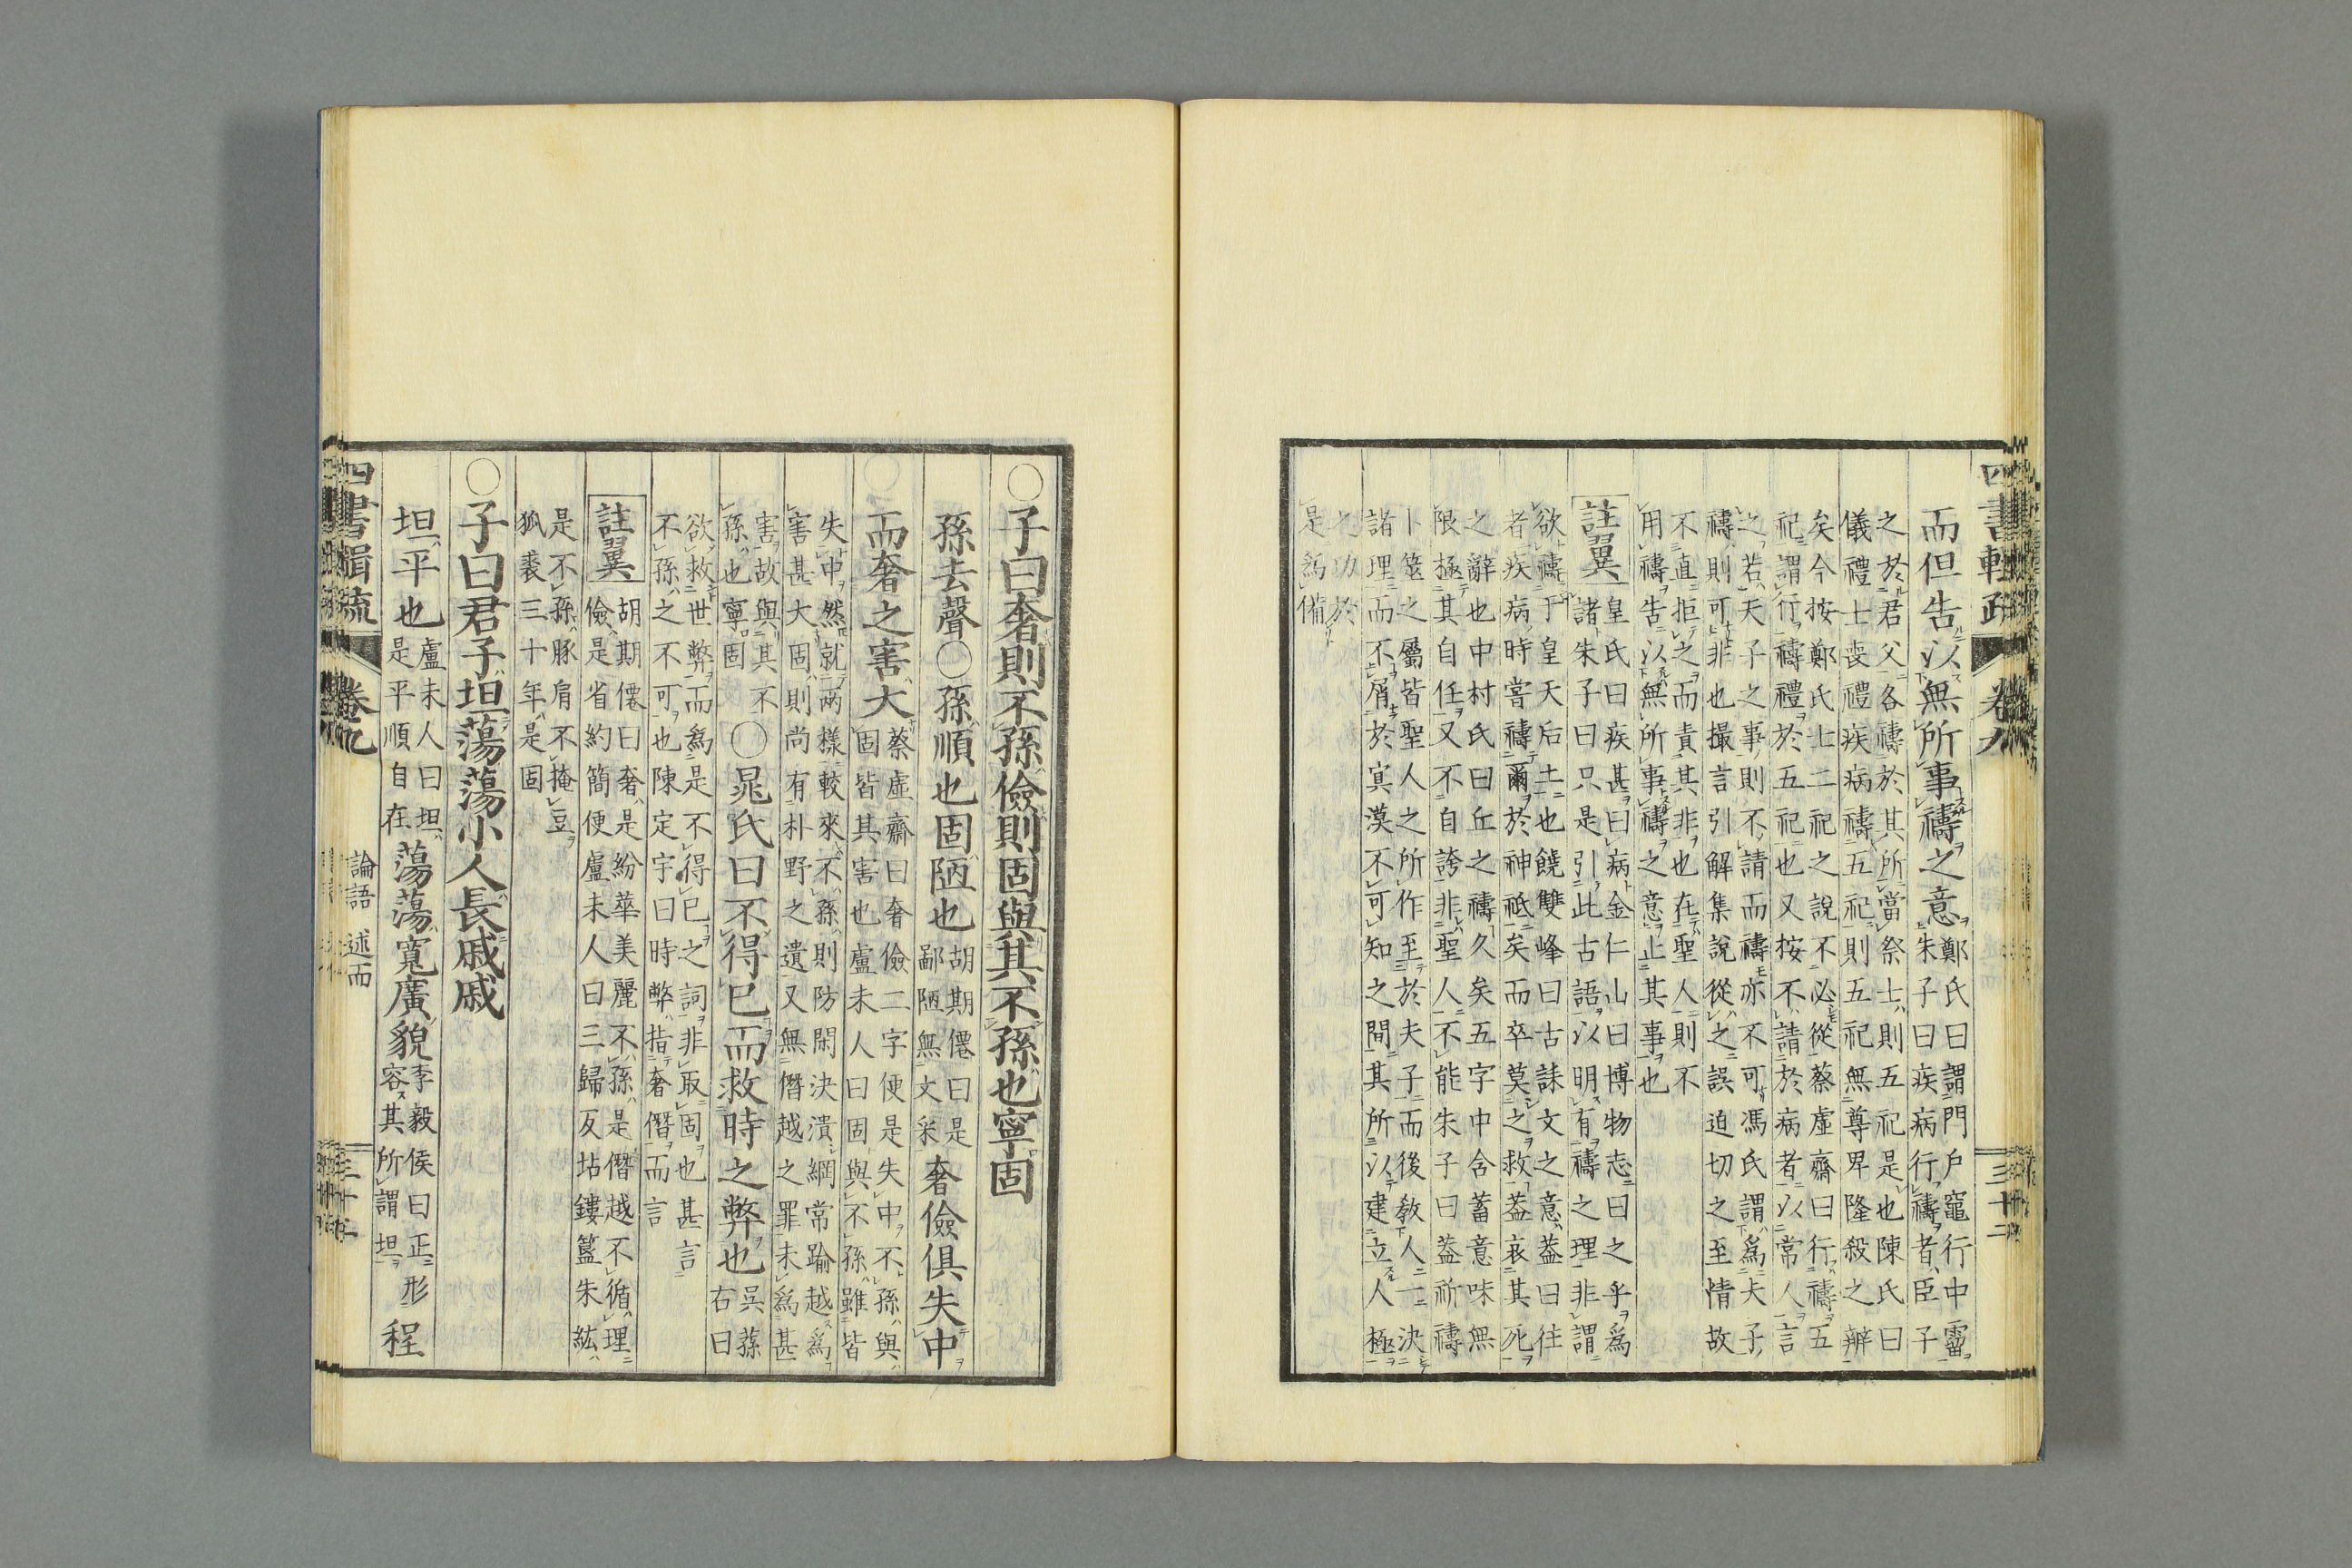 而但告以無所事禱之意鄭氏曰謂門户竈行中霤
朱子曰疾病行禱者臣子
之於君父各禱於其所當祭士則五祀是也陳氏曰
儀禮士喪禮疾病禱五祀則五祀無尊卑隆殺之辨
矣今按鄭氏士二祀之說不必從蔡虛齋曰行禱五
祀謂行禱禮於五祀也又按不請於病者以常人言
之若天子之事則不請而禱亦不可馮氏謂爲夫子
禱則可非也撮言引解集說從之誤迫切之至情故
不直拒之而責其非也在聖人則不
用禱告以無所事禱之意止其事也
註翼
皇氏曰疾甚曰病金仁山曰博物志曰之乎爲
諸朱子曰只是引此古語以明有禱之理非謂
欲禱于皇天后土也饒雙峰曰古誄文之意蓋曰往
者疾病時嘗禱爾於神祇矣而卒莫之救蓋哀其死
之辭也中村氏曰丘之禱久矣五字中含蓄意味無
限極其自任又不自誇非聖人不能朱子曰蓋祈禱
卜筮之屬皆聖人之所作至於夫子而後敎人一決
諸理而不屑於冥漠不可知之間其所以建立人極
之功於
是爲備
四書輯疏 卷九 三十二
○子曰奢則不孫儉則固與其不孫也寧固
孫去聲○孫順也固陋也胡期僊曰是
鄙陋無文采
奢儉俱失中
而奢之害大蔡虛齋曰奢儉二字便是失中不孫與
固皆其害也盧未人曰固與不孫雖皆
失中然就两樣較來不孫則防閑決潰綱常踰越爲
害甚大固則尚有朴野之遺又無僭越之罪未爲甚
害故與其不
孫也寧固
○晁氏曰不得已而救時之弊也吳蓀
右曰
欲救世弊而爲是不得已之詞非取固也甚言
不孫之不可也陳定宇曰時弊指奢僭而言
註翼
胡期僊曰奢是紛華美麗不孫是僭越不循理
儉是省約簡便盧未人曰三歸反坫鏤簋朱紘
是不孫豚肩不掩豆
狐裘三十年是固
○子曰君子坦蕩蕩小人長戚戚
坦平也盧未人曰坦
是平順自在
蕩蕩寬廣貌李毅侯曰正形
容其所謂坦
程
四書輯疏 卷九 論語 述而 三十二